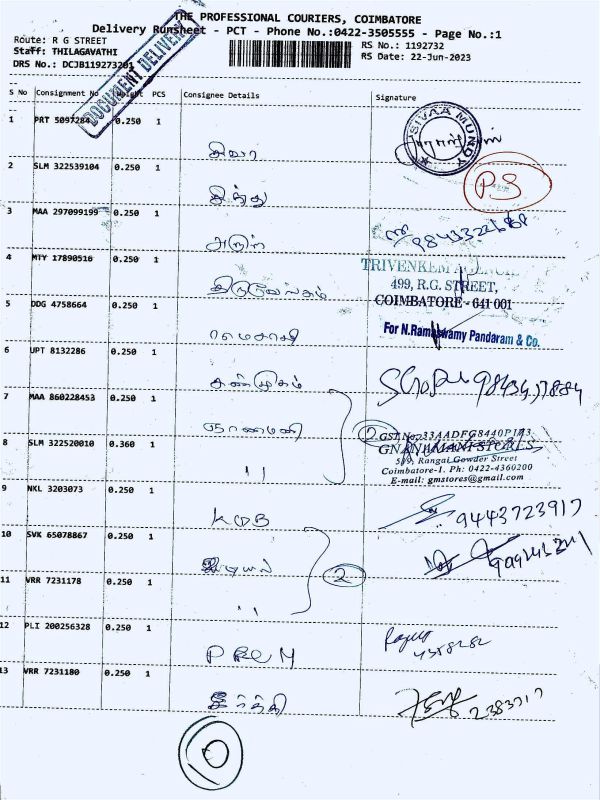 THE PROFESSIONAL COURIERS, COIMBATORE
Delivery Runsheet - PCT - Phone No.:0422-3505555 - Page No.:1
Route: R G STREET
Staff: THILAGAVATHI
RS No.: 1192732
DRS No.: DCJB119273201
RS Date: 22-Jun-2023
DOCUMENT DELIVERY
S No Consignment No Weight PCS Consignee Details Signature
1 PRT 5097284 0.250 1 சிவா
SIVAA MUNDY
2 SLM 322539104 0.250 1 இந்து
PS
3 MAA 297099199 0.250 1 அருள்
4 MTY 17890516 0.250 1 திருவேங்கடம்
TRIVENKEM AGENCIES
499, R.G. STREET,
COIMBATORE - 641 001
5 DDG 4758664 0.250 1 ராமசாமி
For N.Ramaswamy Pandaram & Co.
6 UPT 8132286 0.250 1 சண்முகம்
7 MAA 860228453 0.250 1 ஞானமணி
2
GST No: 33AADFG8440P1Z3
GNANAMANI STORES
8 SLM 322520010 0.360 1 "
539, Rangai Gowder Street
Coimbatore-1. Ph: 0422-4360200
E-mail: gmstores@gmail.com
9 NKL 3203073 0.250 1 KMB
9443723917
10 SVK 65078867 0.250 1
2
11 VRR 7231178 0.250 1 "
12 PLI 200256328 0.250 1 PREM
13 VRR 7231180 0.250 1 கீர்த்தி
2383717